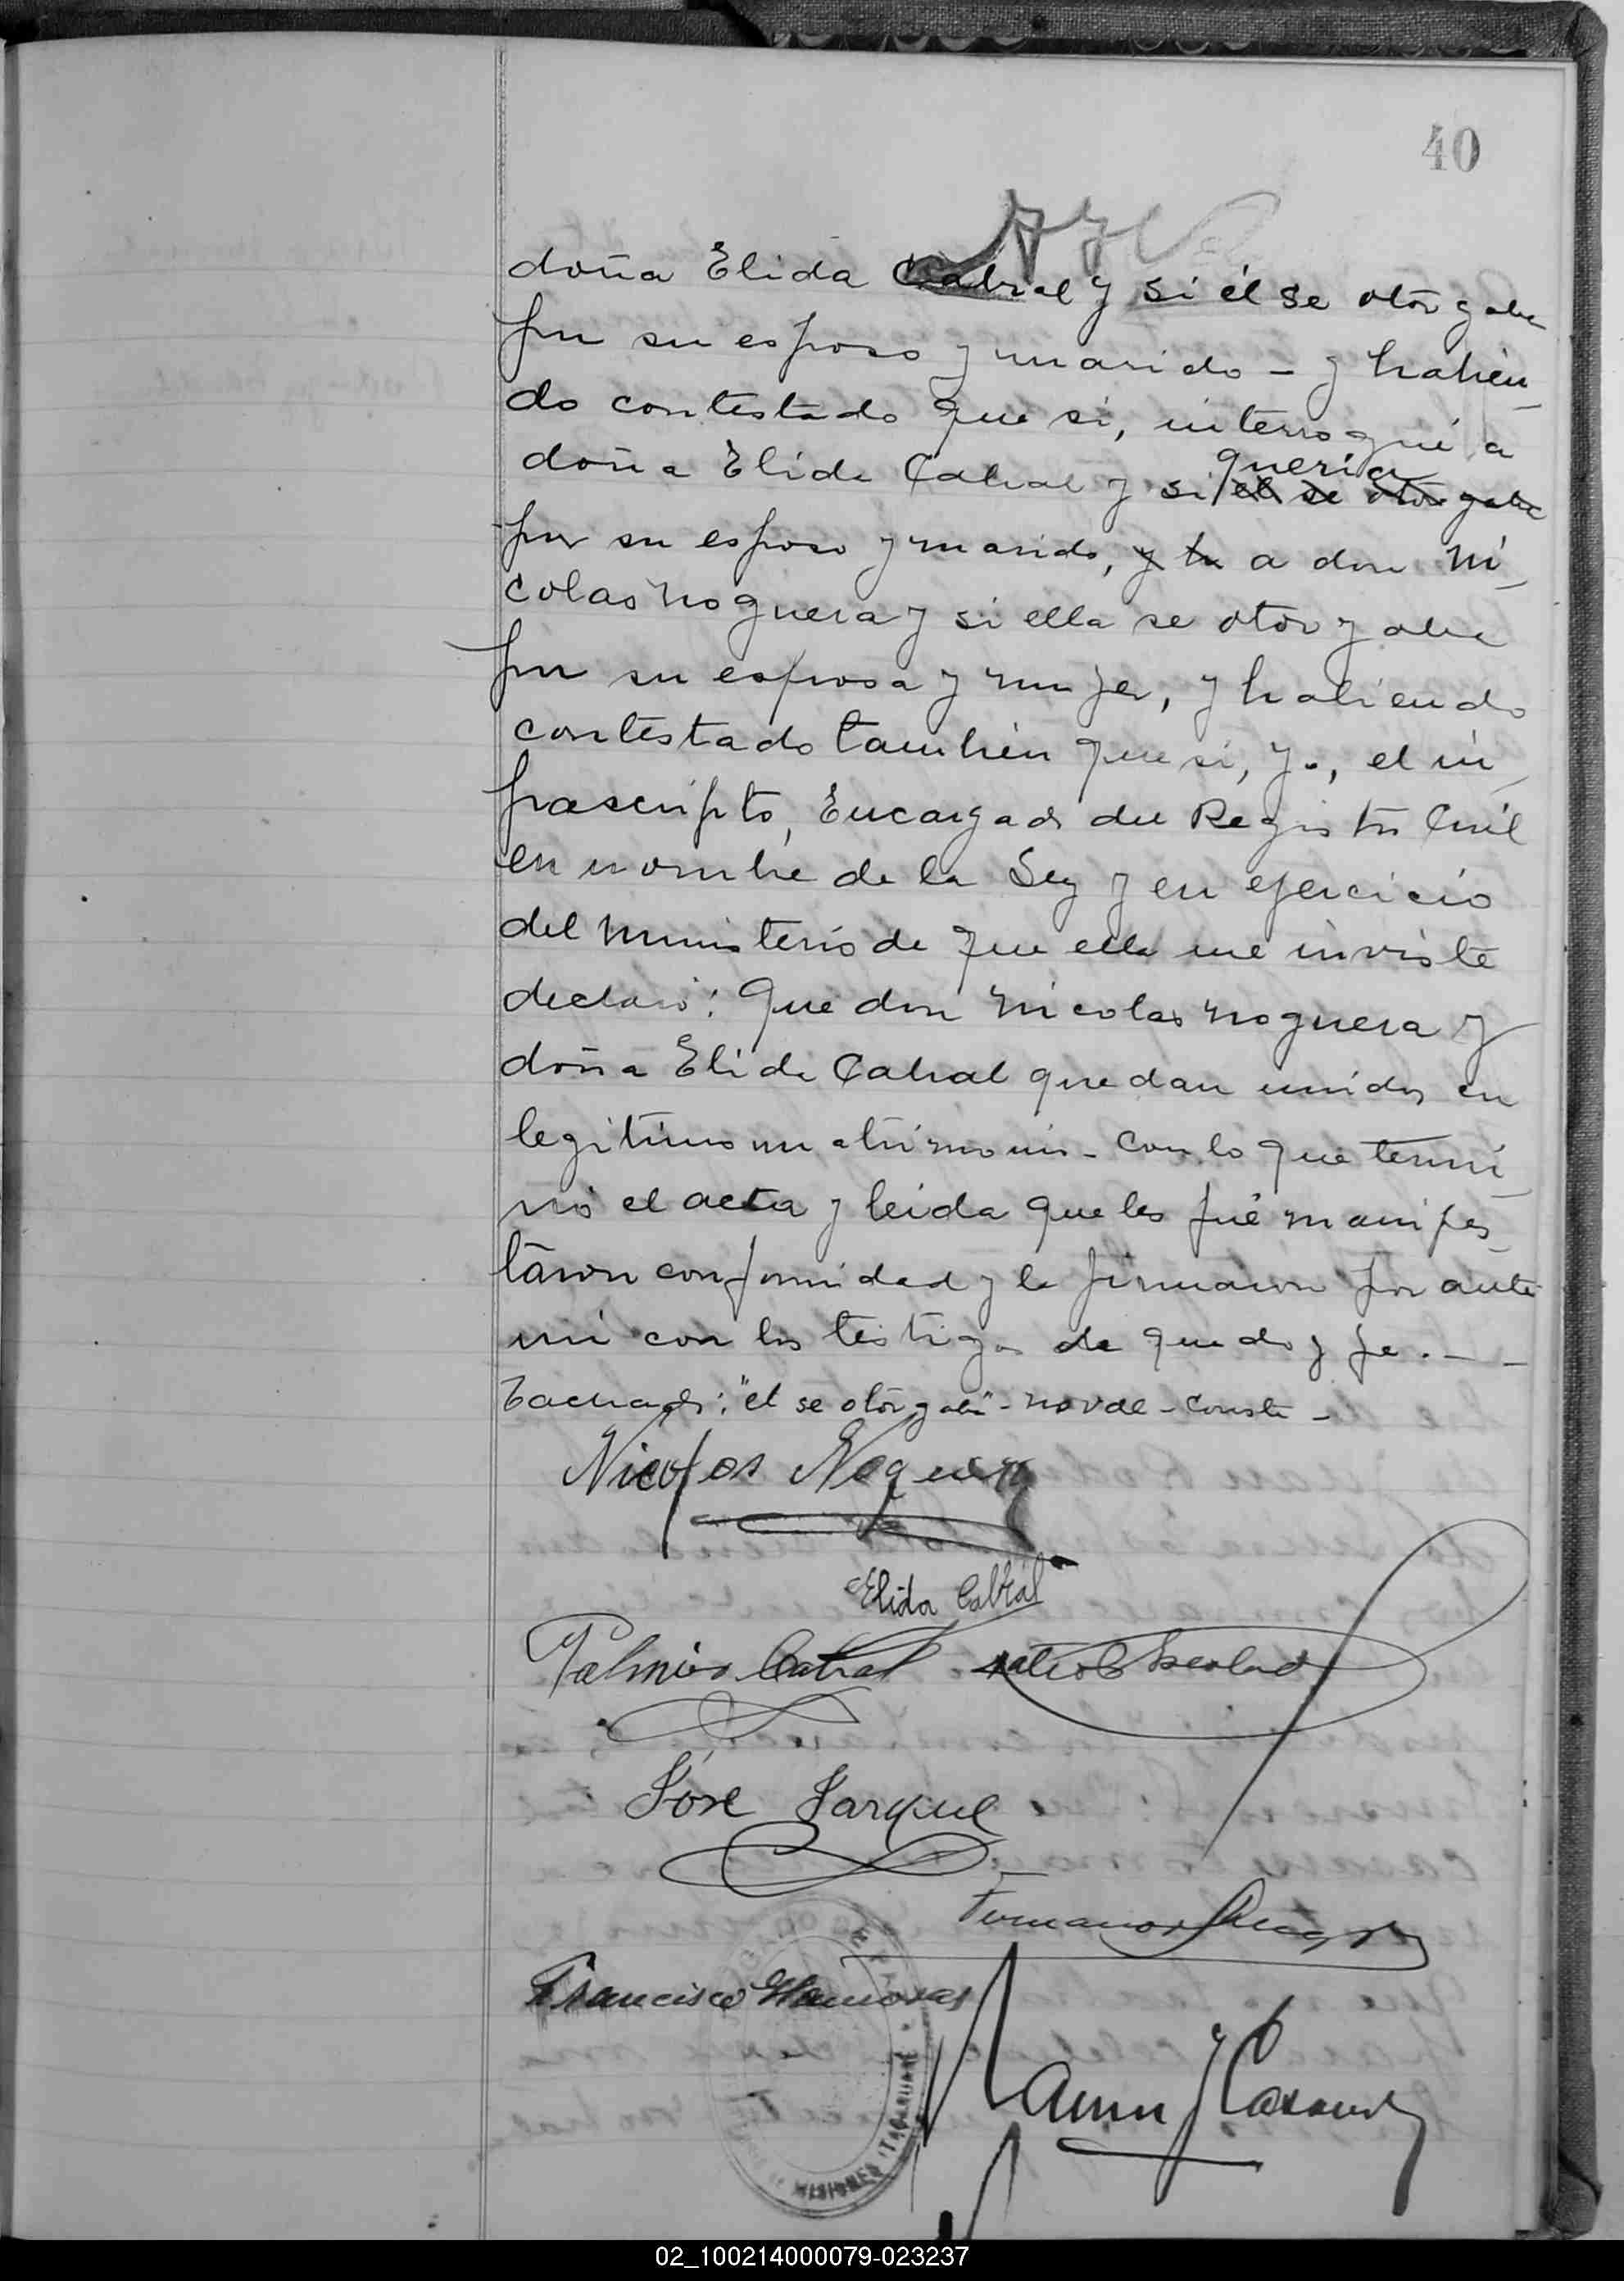 40
doña Elida Cabral y si él se otorgaba
por su esposo y marido - y habien_
do contestado que si, interrogué a
doña Elida Cabral y si queria el se otorgaba
por su esposo y marido, y h a don Ni_
colas Noguera y si ella se otorgaba
por su esposa y mujer, y habiendo
contestado tambien que si, yo, el in_
frascripto, Encargado del Registro Civil
en nombre de la Ley y en ejercicio
del ministerio de que ella me inviste
declaro: Que don Nicolas Noguera y
doña Elida Cabral quedan unidos en
legitimo matrimonio - Con lo que termi_
nó el acta y leida que les fué manifes_
taron conformidad y la firmaron por ante
mi con los testigos de que doy fe. - -
Tachado: "el se otorgaba" - no vale - Conste -
Nicolas Noguera
Elida Cabral
Palmiro Cabral
José Jarque
Francisco
Ramon
MISIONES ITACARUARÉ
02_100214000079-023237